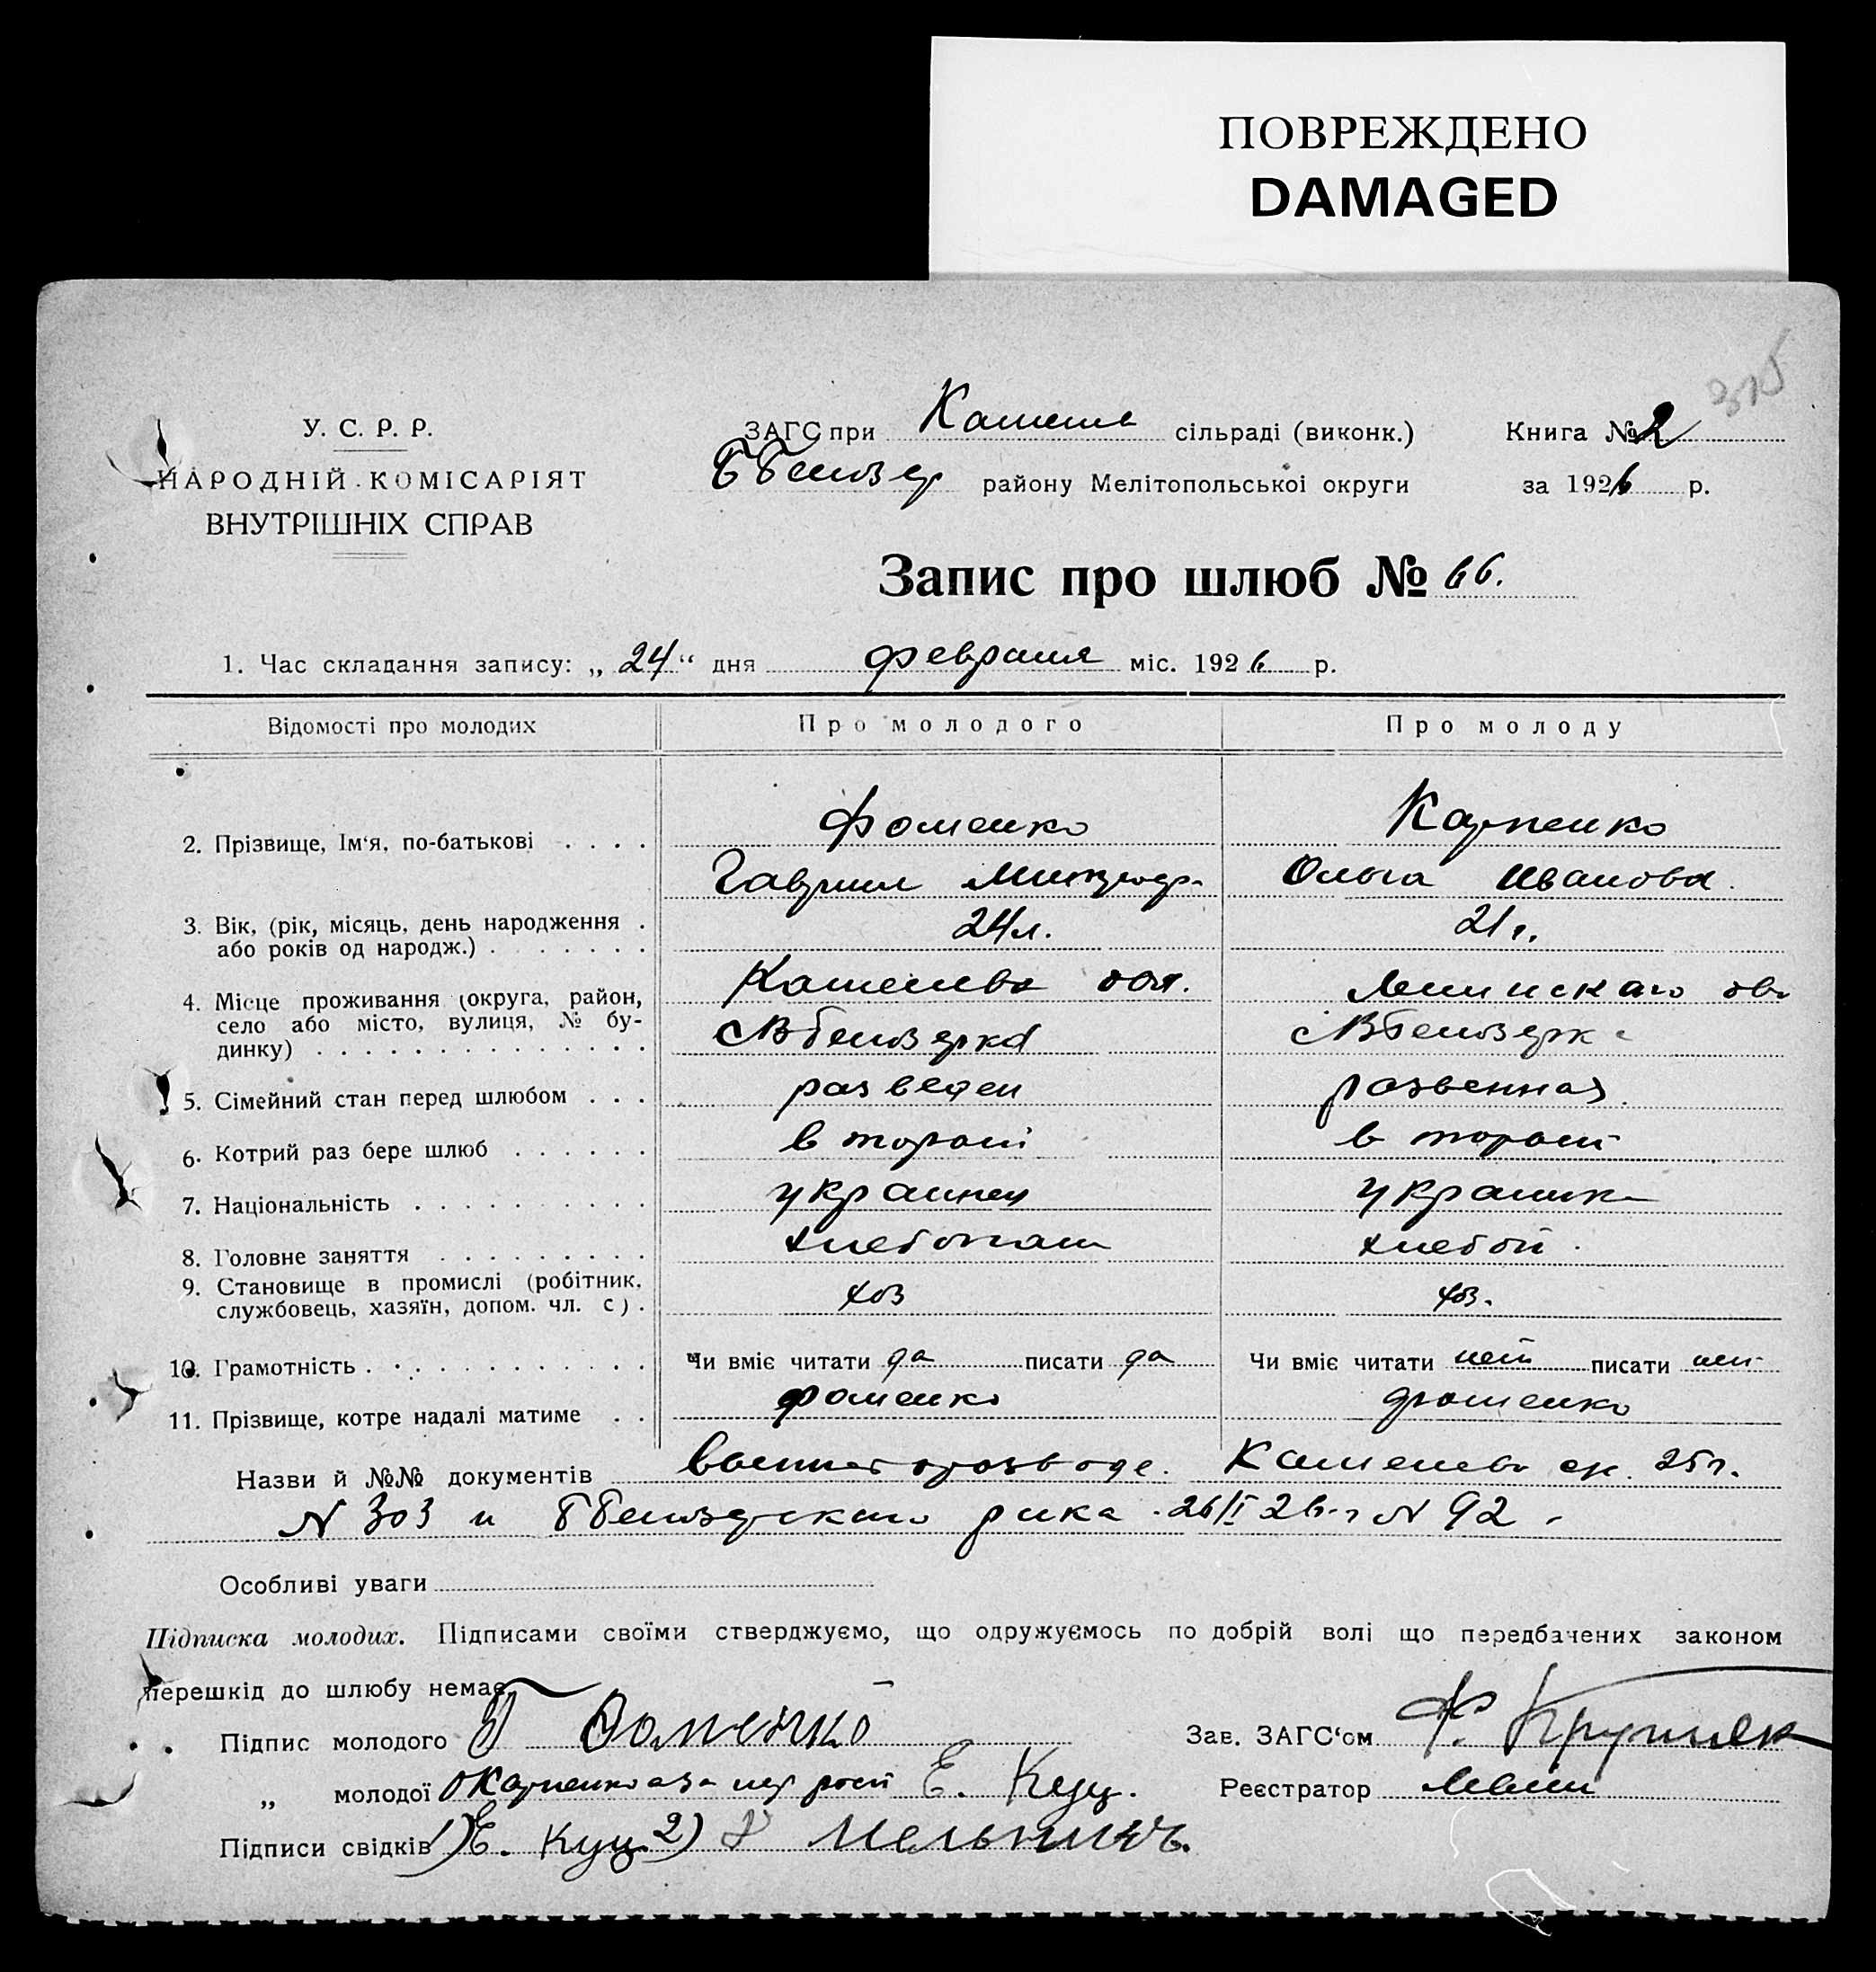 ПОВРЕЖДЕНО
DAMAGED
315
У. С. Р. Р.
НАРОДНІЙ КОМІСАРІЯТ
ВНУТРІШНІХ СПРАВ
ЗАГС при Камен сільраді (виконк.)
Книга № 2
ББелозер району Мелітопольської округи
за 1926 р.
Запис про шлюб № 66.
1. Час складання запису: „ 24 “ дня февраля міс. 1926 р.
Відомості про молодих
Про молодого
Про молоду
2. Прізвище, Ім‘я, по-батькові . . . .
Фоменко
Карпенко
Гаврил
Ольга Иванова.
3. Вік, (рік, місяць, день народження .
або років од народж.) . . . . . . .
24 л.
21 г.
4. Місце проживання (округа, район,
село або місто, вулиця, № бу-
динку) . . . . . . . . . . . . . .
5. Сімейний стан перед шлюбом . . .
разведен
6. Котрий раз бере шлюб . . . . . .
второй
второй
7. Національність . . . . . . . . . .
украинец
украинк
8. Головне заняття . . . . . . . . .
хлебопаш
9. Становище в промислі (робітник,
службовець, хазяїн, допом. чл. с) .
хоз
хоз.
10. Грамотність . . . . . . . . . . .
Чи вміє читати да писати да
Чи вміє читати нет писати нет
11. Прізвище, котре надалі матиме . .
фоменко
фоменко
Назви й №№ документів
25 г.
N 303 и ББелозерского рика 26/I 26 г N 92
Особливі уваги
Підписка молодих. Підписами своїми стверджуємо, що одружуємось по добрій волі що передбачених законом
перешкід до шлюбу немає.
Підпис молодого Г Фоменко
Зав. ЗАГС‘ом
„ молодої Карпенко а за нер росп Е. Куц.
Реєстратор
Підписи свідків 1) Е. Куц 2)